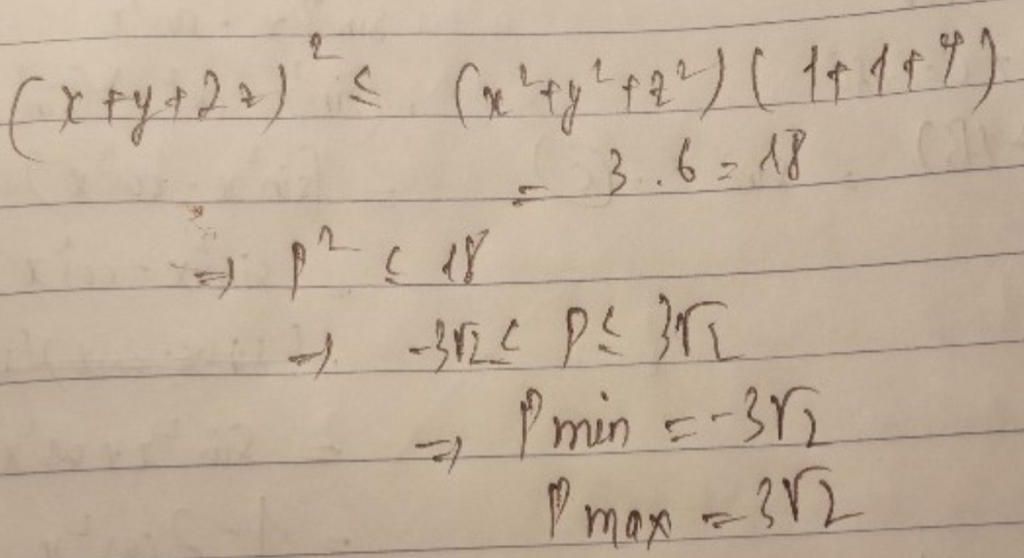 (x+y+2z)² ≤ (x²+y²+z²)(1+1+4)
= 3.6=18
⇒ P² ≤ 18
→ -3√2 ≤ P ≤ 3√2
⇒ Pmin = -3√2
Pmax = 3√2